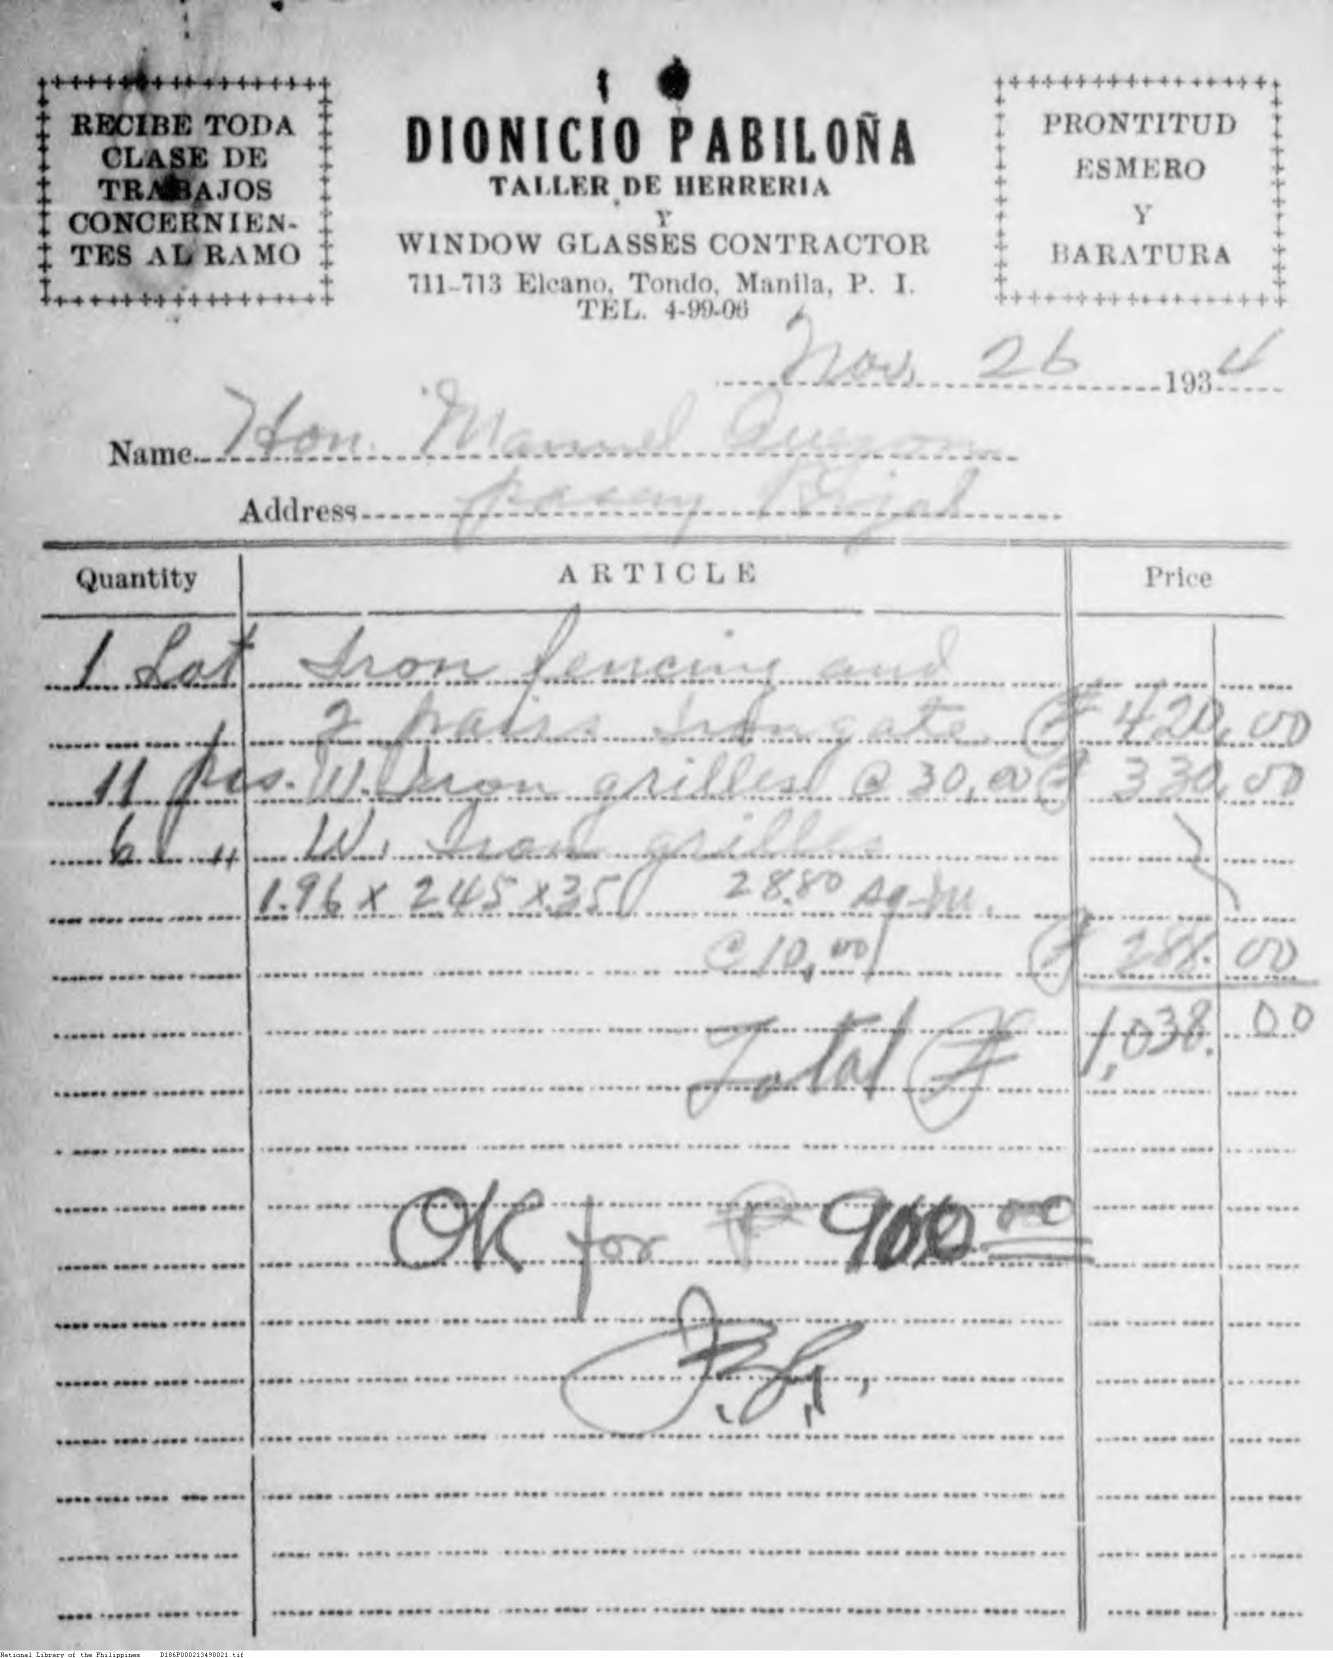 RECIBE TODA
CLASE DE
TRABAJOS
CONCERNIEN-
TES AL RAMO
DIONICIO PABILOÑA
TALLER DE HERRERIA
Y
WINDOW GLASSES CONTRACTOR
711-713 Elcano, Tondo, Manila, P. I.
TEL. 4-99-06
PRONTITUD
ESMERO
Y
BARATURA
Nov. 26 1934
Name Hon. Manuel Quezon
Address pasay Rizal
Quantity ARTICLE Price
1 Lot Iron fencing and
2 pairs Iron gate ₱ 420.00
11 pcs. W. Iron grilles @ 30,00 ₱ 330,00
6 " W. Iron grilles
1.96 x 2.45 x.35 28.80 sq-m.
@ 10,00 ₱ 288.00
Total ₱ 1,038.00
OK for ₱ 900.00
National Library of the Philippines D186P000213498021.tif